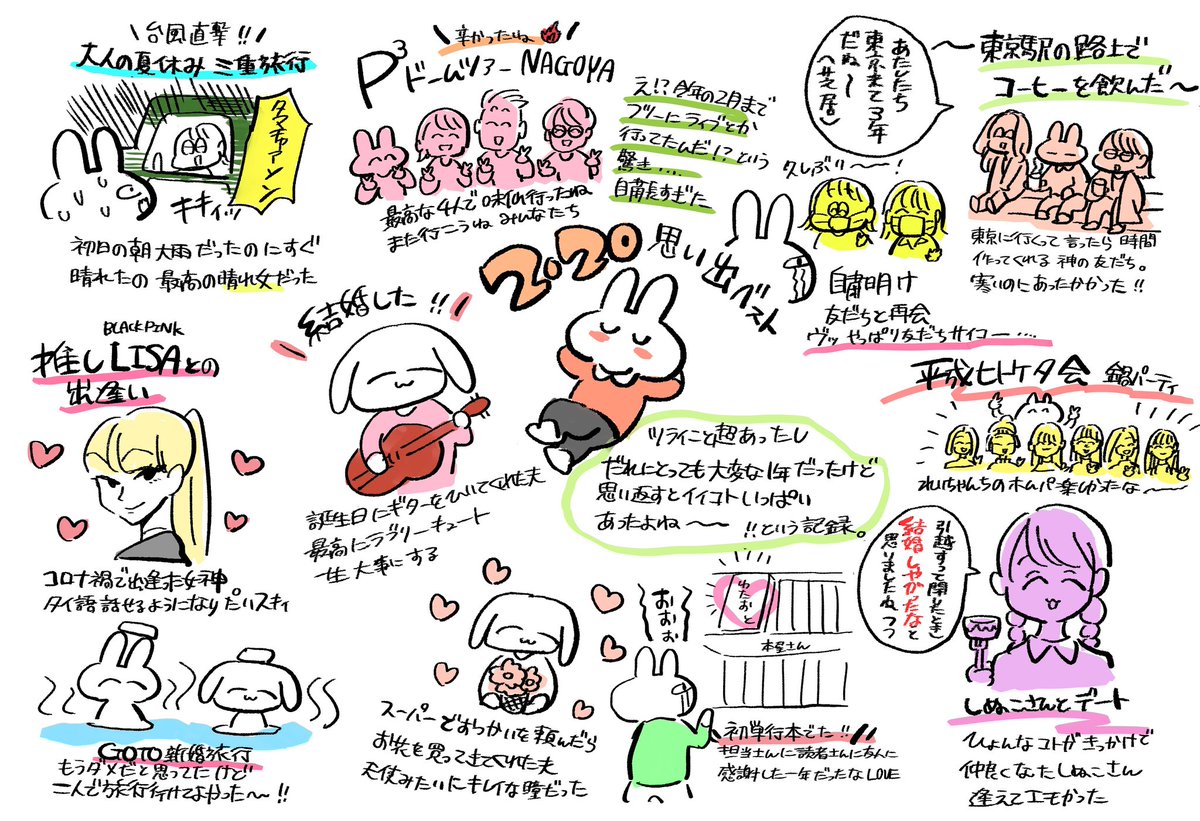 台風直撃!!
大人の夏休み 三重旅行
タマチャァーン
キキィッ
初日の朝 大雨だったのにすぐ
晴れたの 最高の晴れ女だった
辛かったね
P³ドームツアー NAGOYA
最高な4人で 味仙行ったね
また行こうね みんなたち
え!?今年の2月まで
フツーにライブとか
行ってたんだ!?という
驚き....
自粛長すぎた
あたしたち
東京来て3年
だね〜
〈芝居〉
〜東京駅の路上で
コーヒーを飲んだ〜
東京に行くって言ったら 時間
作ってくれる 神の友だち。
寒いのにあったかかった!!
久しぶり〜〜!
自粛明け
友だちと再会
ヴッ やっぱり友だちサイコー....
2020
思い出ベスト
結婚した!!
誕生日にギターをひいてくれた夫
最高にラブリーキュート
一生大事にする
BLACKPINK
推しLISAとの
出逢い
コロナ禍で出逢えた女神
タイ語話せるようになりたい スキ
ツライこと超あったし
だれにとっても大変な1年だったけど
思い返すとイイコトいっぱい
あったよね〜〜!!という記録。
平成ヒトケタ会 鍋パーティ
れいちゃんちのホムパ楽しかったな〜〜
引越すって聞いたとき
結婚しやがったなと
思いましたねっつって
しぬこさんとデート
ひょんなコトがきっかけで
仲良くなったしぬこさん
逢えてエモかった
GOTO新婚旅行
もうダメだと思ってたけど
二人で旅行行けてよかった〜!!
スーパーでおつかいを頼んだら
お花を買ってきてくれた夫
天使みたいにキレイな瞳だった
おぉぉ
ゆたおと
本屋さん
初単行本でた!!
担当さんに読者さんにあんに
感謝した一年だったな LOVE